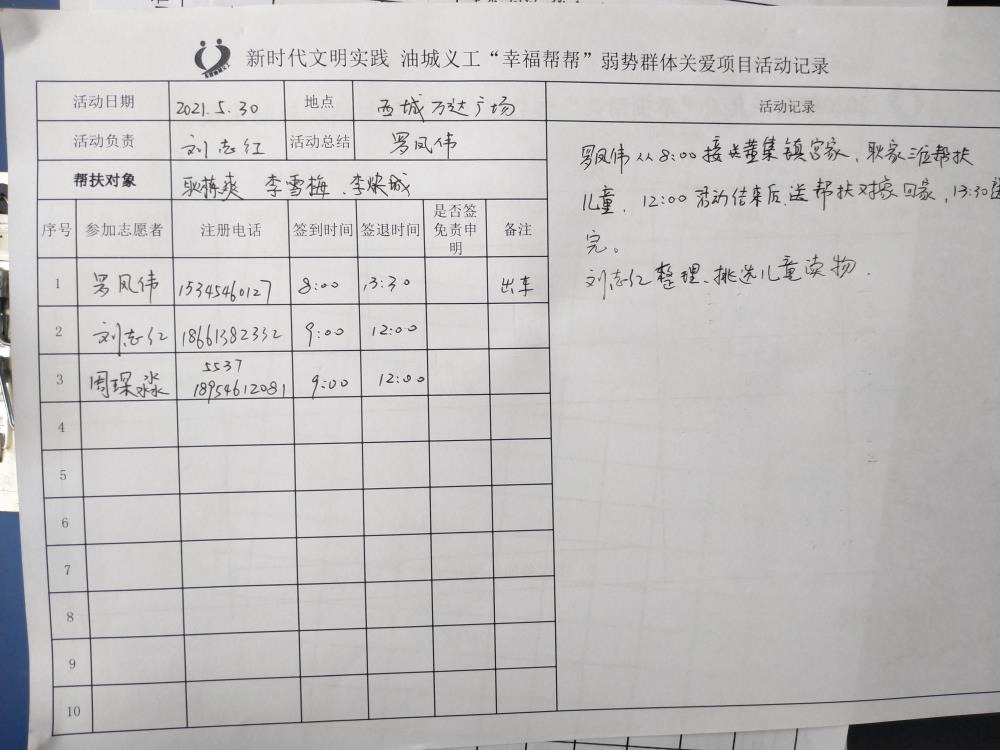 新时代文明实践 油城义工“幸福帮帮”弱势群体关爱项目活动记录
活动日期 2021.5.30 地点 西城万达广场 活动记录
活动负责 刘志红 活动总结 罗凤伟
帮扶对象 李雪梅
序号 参加志愿者 注册电话 签到时间 签退时间 是否签免责申明 备注
1 罗凤伟 15345460127 8:00 13:30 出车
2 刘志红 18661382332 9:00 12:00
5537
3 18954612081 9:00 12:00
4
5
6
7
8
9
10
罗凤伟从8:00接 董集镇宫家、耿家三位帮扶
儿童, 12:00活动结束后, 送帮扶对象回家, 13:30送
完。
刘志红整理、挑选儿童读物.